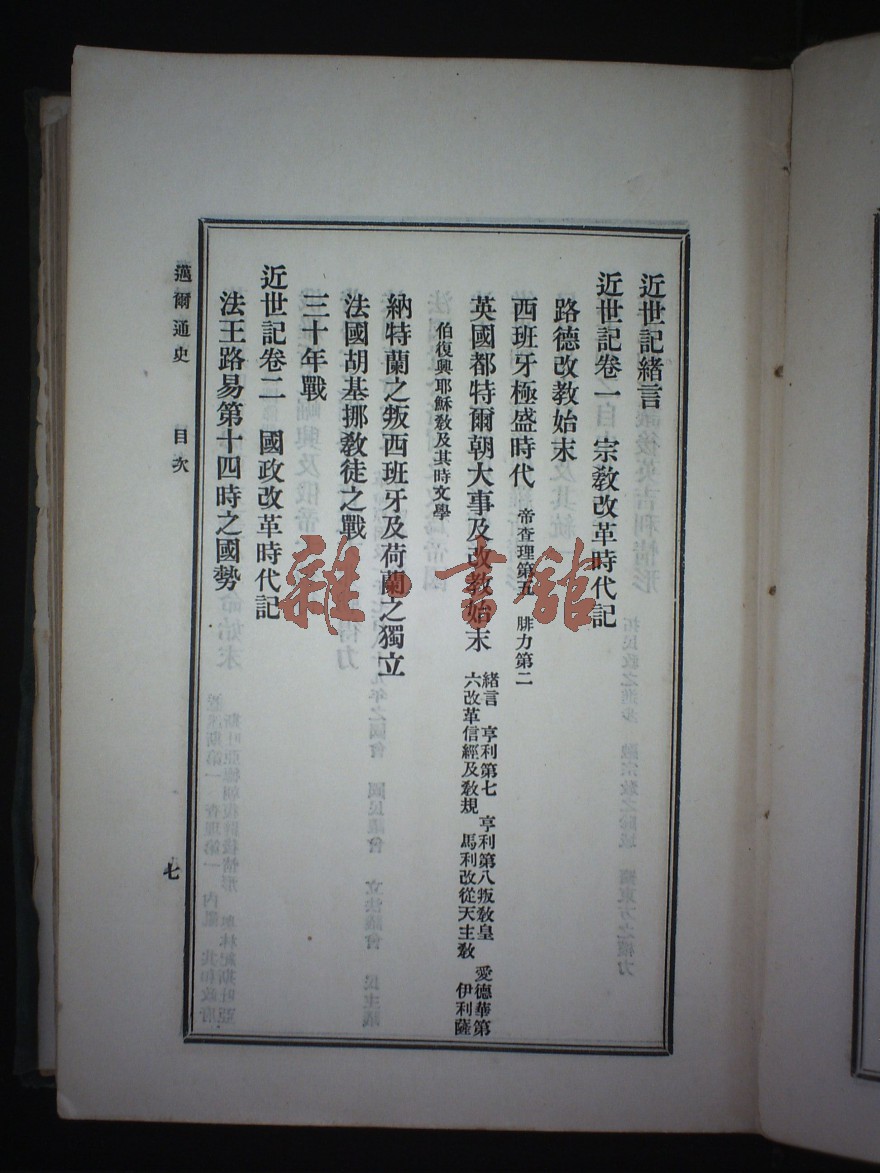 近世記緒言
近世記卷一 宗教改革時代記
路德改教始末
西班牙極盛時代 帝查理第五 腓力第二
英國都特爾朝大事及改教始末 緒言 亨利第七 亨利第八叛教皇 愛德華第
六改革信經及教規 馬利改從天主教 伊利薩
伯復興耶穌教及其時文學
納特蘭之叛西班牙及荷蘭之獨立
法國胡基挪教徒之戰
三十年戰
近世記卷二 國政改革時代記
法王路易第十四時之國勢
邁爾通史 目次
七
雜·書館